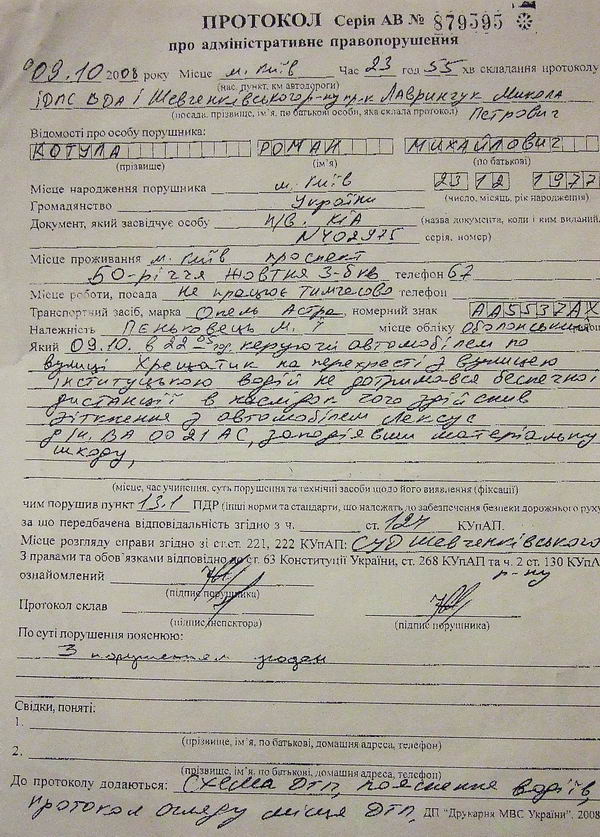 ПРОТОКОЛ Серія АВ № 879595
про адміністративне правопорушення
09.10 2008 року Місце м. Київ Час 23 год 55 хв складання протоколу
(нас. пункт, км автодороги)
ІДПС ВДАІ Шевченківського р-ну пр-к Лаврінчук Микола
(посада, прізвище, ім'я, по батькові особи, яка склала протокол) Петрович
Відомості про особу порушника:
КОТУЛА РОМАН МИХАЙЛОВИЧ
(прізвище) (ім'я) (по батькові)
Місце народження порушника м. Київ 23 12 1977
Громадянство України (число, місяць, рік народження)
Документ, який засвідчує особу п/в. КІА (назва документа, коли і ким виданий,
N402975 серія, номер)
Місце проживання м. Київ проспект
50-річчя Жовтня 3-б кв телефон 67
Місце роботи, посада не працює тимчасово телефон
Транспортний засіб, марка Опель Астра, номерний знак АА5537АХ
Належність Пеньковець М. Т місце обліку оболонський
Який 09.10. в 22 05 год. керуючи автомобілем по
вулиці Хрещатик на перехресті з вулицею
Інституцькою водій не дотримався безпечної
дистанції в наслідок чого здійснив
зіткнення з автомобілем Лексус
д/н. ВА 0021 АС, заподіявши матеріальну
шкоду,
(місце, час учинення, суть порушення та технічні засоби щодо його виявлення (фіксації)
чим порушив пункт 13.1 ПДР (інші норми та стандарти, що належать до забезпечення безпеки дорожнього руху
за що передбачена відповідальність згідно з ч. ст. 124 КУпАП.
Місце розгляду справи згідно зі ст.ст. 221, 222 КУпАП: Суд Шевченківського
З правами та обов'язками відповідно до ст. 63 Конституції України, ст. 268 КУпАП та ч. 2 ст. 130 КУпАП
р-ну
ознайомлений
(підпис порушника)
Протокол склав
(підпис інспектора) (підпис порушника)
По суті порушення пояснюю:
З порушенням згоден
Свідки, поняті:
1.
(прізвище, ім'я, по батькові, домашня адреса, телефон)
2.
(прізвище, ім'я, по батькові, домашня адреса, телефон)
До протоколу додаються: схема ДТП, пояснення водіїв,
протокол огляду місця ДТП, ДП "Друкарня МВС України". 2008